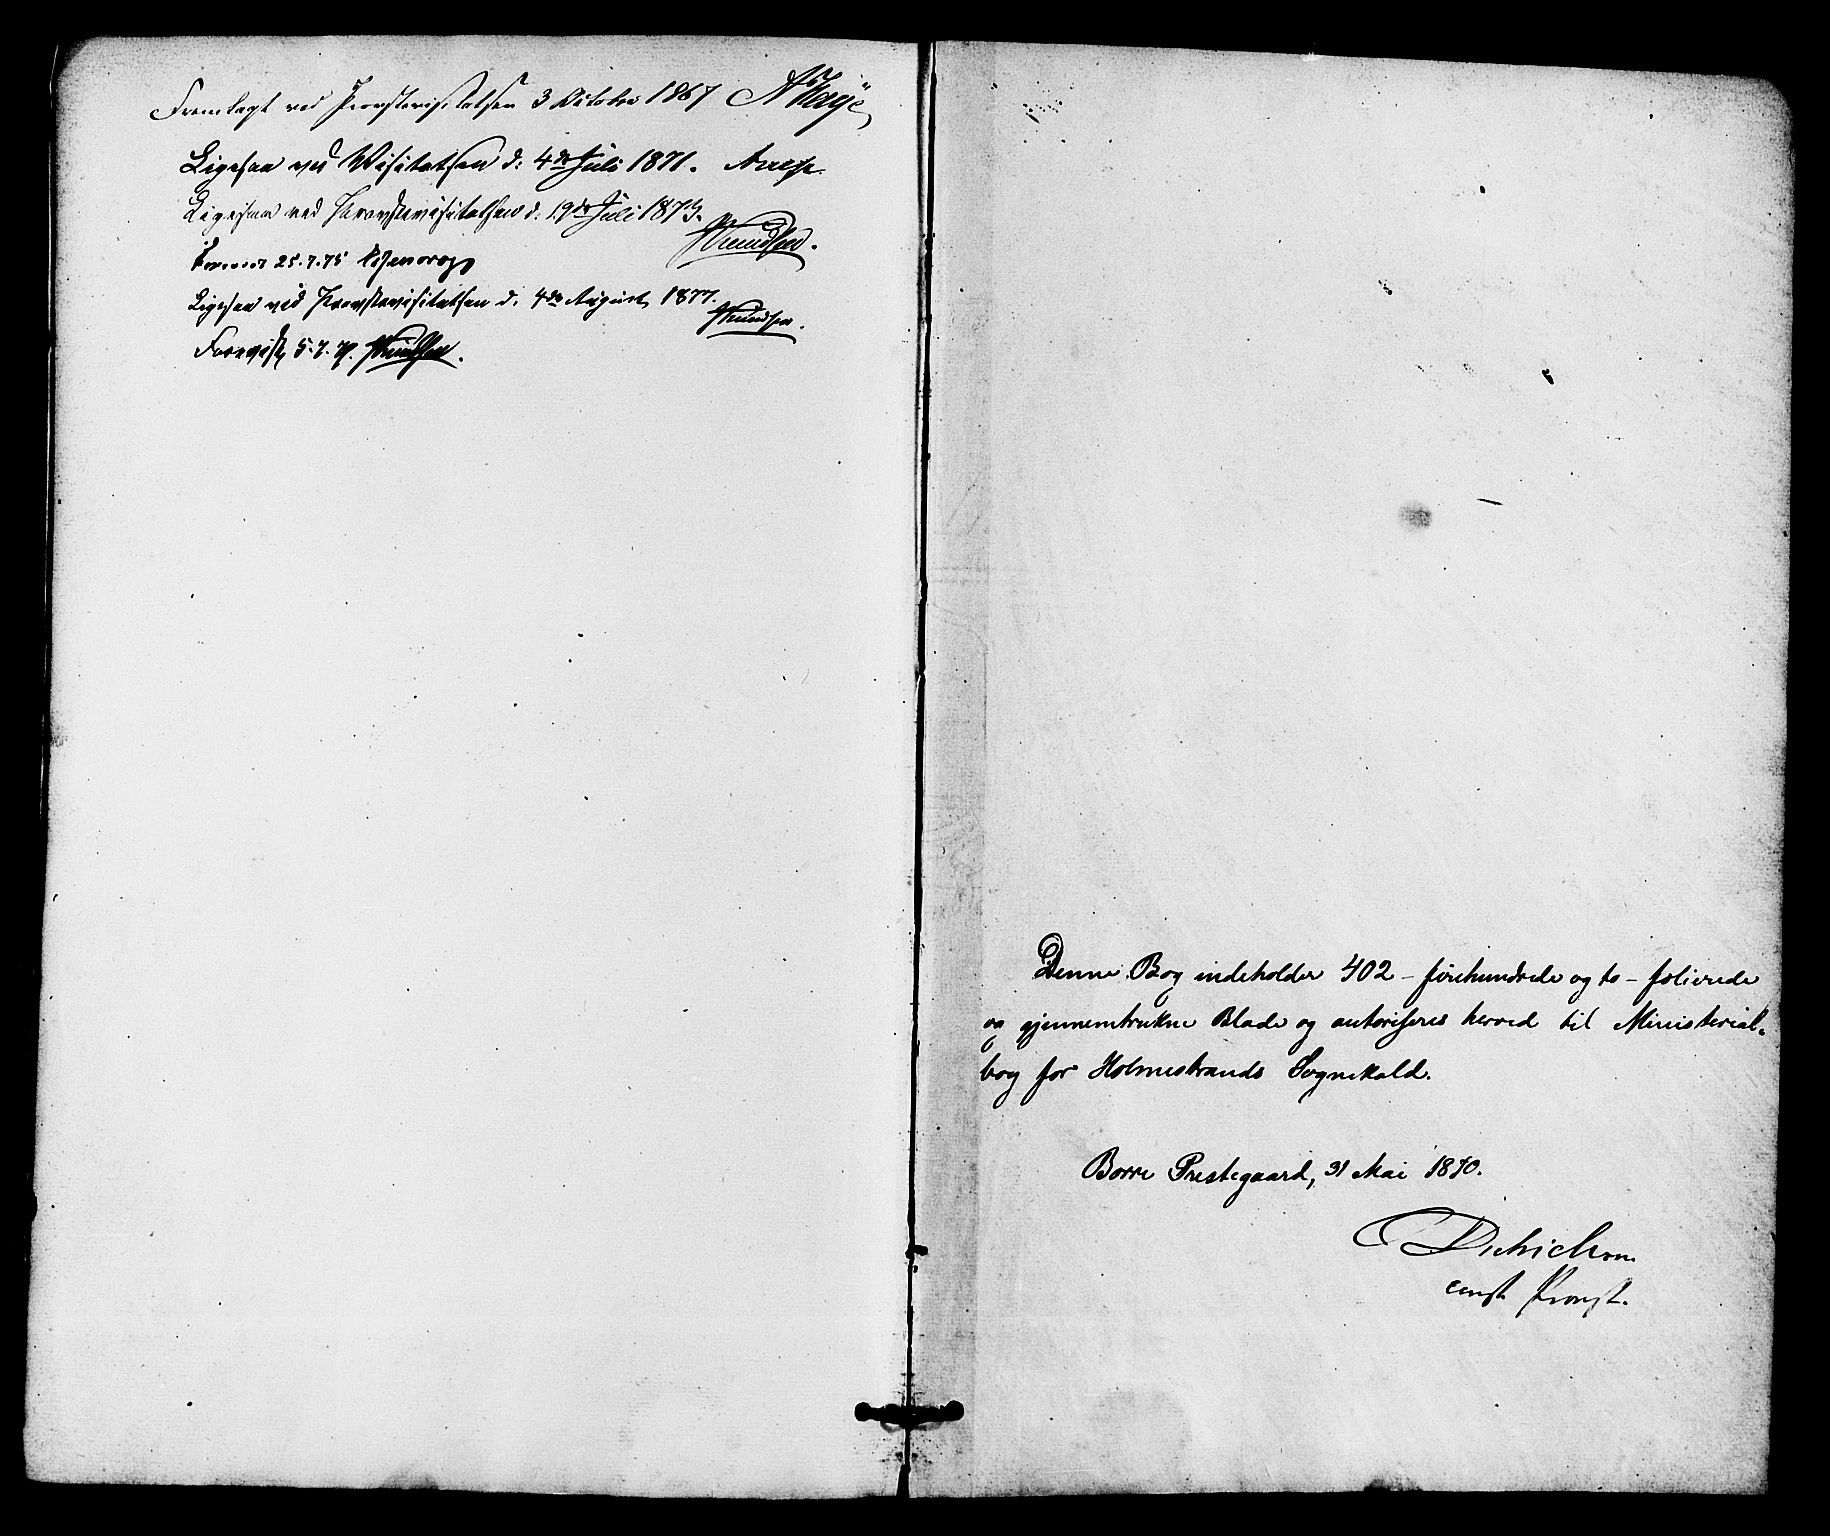 Fremlagt ved Provstevisitatsen 3 October 1867
Ligesaa ved Visitatsen d: 4de Juli 1871.
Ligesaa ved Provstevisitatsen d. 19de Juli 1873.
Knudsen.
25.7.75
Ligesaa ved Provstevisitatsen d. 4de August 1877.
Knudsen.
Forevist 5.7. Knudsen.
Denne Bog indeholder 402 - firehundrede og to - folierede
og gjennemtrukne Blade og autoriseres herved til Ministerial-
bog for Holmestrands Sognekald.
Borre Prestegaard, 31 Mai 1870.
Dietrichson
const Provst.